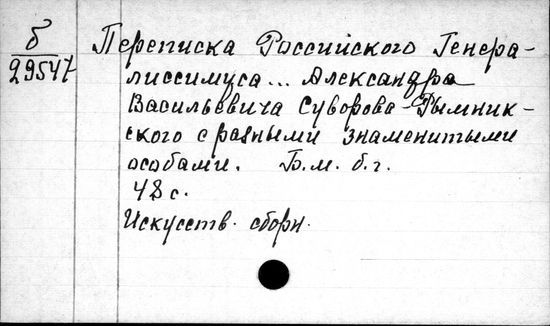 б
29547
Переписка Российского Генера-
лиссимуса... Александра
Васильевича Суворова-Рымник-
ского с разными знаменитыми
особами. Б.м. б.г.
48 с.
Искусств. сборн.